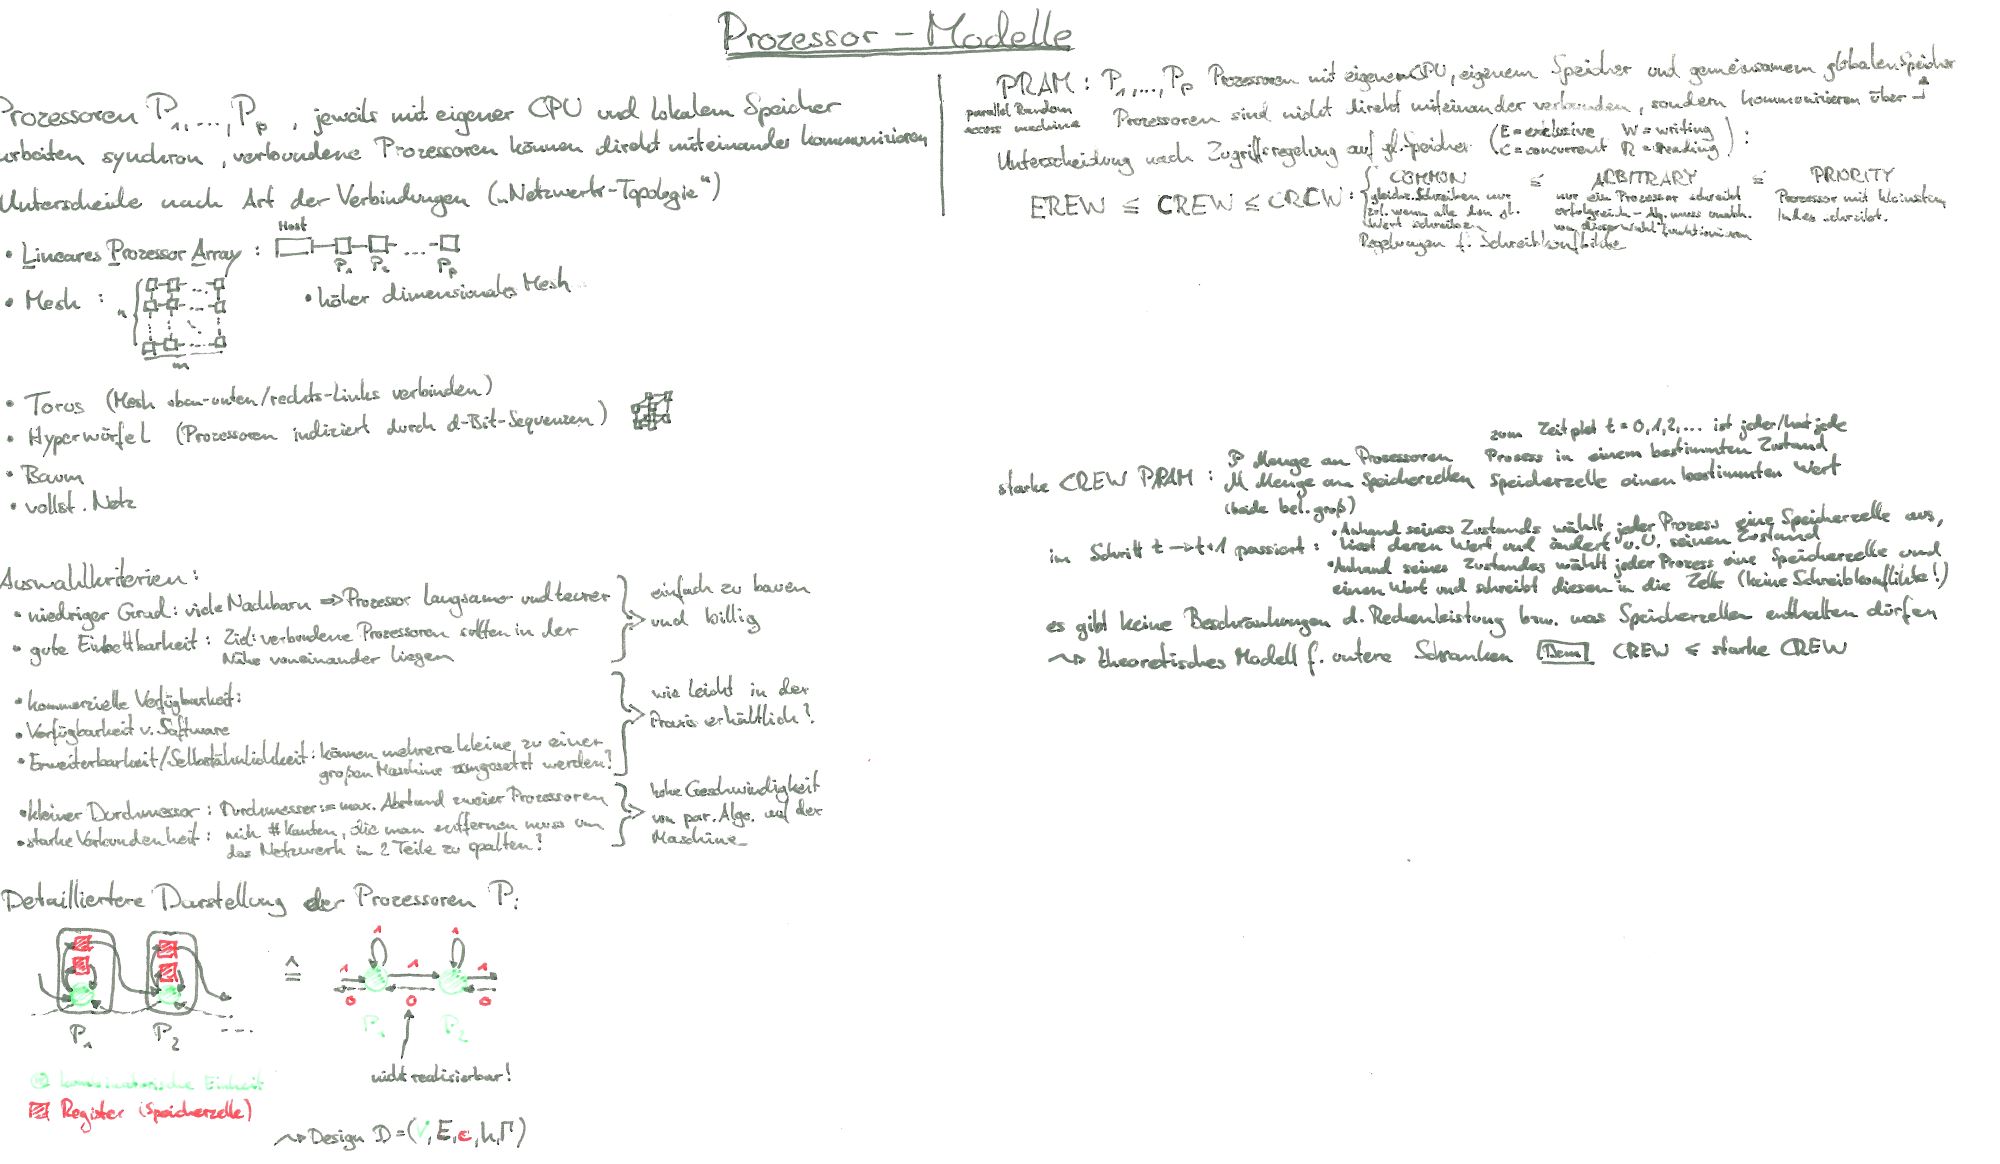 Prozessor - Modelle
Prozessoren P₁,...,Pₚ, jeweils mit eigener CPU und lokalem Speicher
arbeiten synchron, verbundene Prozessoren können direkt miteinander kommunizieren
Unterscheide nach Art der Verbindungen („Netzwerk-Topologie“)
• Lineares Prozessor Array :
Host
P₁ P₂ ... Pₚ
• Mesh :
n
m
• höher dimensionales Mesh
• Torus (Mesh oben-unten/rechts-links verbinden)
• Hyperwürfel (Prozessoren indiziert durch d-Bit-Sequenzen)
• Baum
• vollst. Netz
Auswahlkriterien:
• niedriger Grad: viele Nachbarn ⇒ Prozessor langsamer und teurer
• gute Einbettbarkeit: Ziel: verbundene Prozessoren sollten in der
Nähe voneinander liegen
einfach zu bauen
und billig
• kommerzielle Verfügbarkeit:
• Verfügbarkeit v. Software
• Erweiterbarkeit/Selbstähnlichkeit: können mehrere kleine zu einer
großen Maschine zumgesetzt werden?
wie leicht in der
Praxis erhältlich?
• kleiner Durchmesser: Durchmesser := max. Abstand zweier Prozessoren
• starke Verbundenheit: min. # Kanten, die man entfernen muss um
das Netzwerk in 2 Teile zu spalten?
hohe Geschwindigkeit
von par. Algo. auf der
Maschine
Detailliertere Darstellung der Prozessoren P:
P₁ P₂ ....
≙
1 1
1 1 1
0 0 0
P₁ P₂
nicht realisierbar!
Einheit
Register (Speicherzelle)
⇝ Design D=(V,E,c,h,Γ)
PRAM: P₁,...,Pₚ Prozessoren mit eigener CPU, eigenem Speicher und gemeinsamem globalen Speicher
parallel Random
access machine
Prozessoren sind nicht direkt miteinander verbunden, sondern kommunizieren über
Unterscheidung nach Zugriffsregelung auf gl. Speicher (E = exclusive, W = writing
C = concurrent R = reading):
EREW ≤ CREW ≤ CRCW:
COMMON ≤ ARBITRARY ≤ PRIORITY
gleichz. Schreiben nur
zul. wenn alle den gl.
Wert schreiben
nur ein Prozessor schreibt
erfolgreich - Alg. muss unabh.
von dieser Wahl funktionieren
Prozessor mit kleinstem
Index schreibt.
Regelungen f. Schreibkonflikte
starke CREW PRAM:
P Menge an Prozessoren
M Menge an Speicherzellen
(beide bel. groß)
zum Zeitpkt t = 0,1,2,... ist jeder/hat jede
Prozess in einem bestimmten Zustand
Speicherzelle einen bestimmten Wert
im Schritt t → t+1 passiert:
• Anhand seines Zustands wählt jeder Prozess eine Speicherzelle aus,
liest deren Wert und ändert u.U. seinen Zustand
• Anhand seines Zustandes wählt jeder Prozess eine Speicherzelle und
einen Wert und schreibt diesen in die Zelle (keine Schreibkonflikte!)
es gibt keine Beschränkungen d. Rechenleistung bzw. was Speicherzellen enthalten dürfen
⇝ theoretisches Modell f. untere Schranken Bem CREW ≤ starke CREW